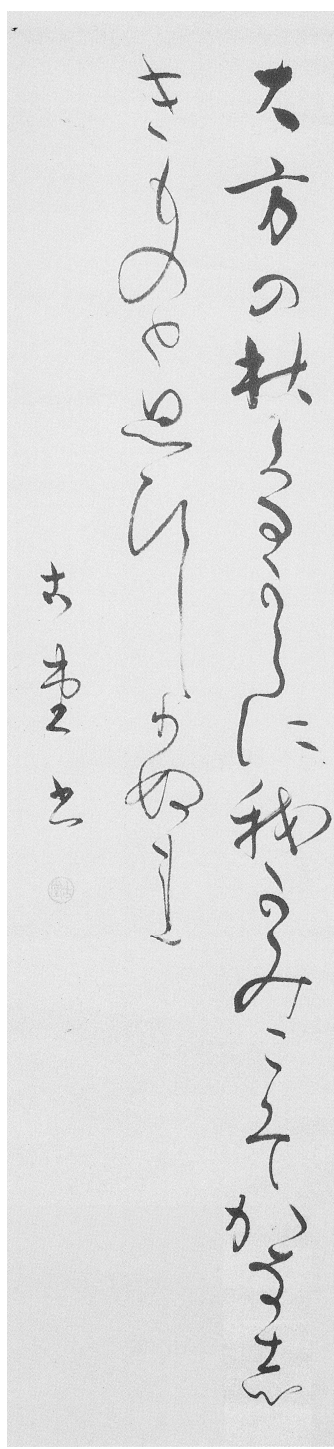 大方の秋くるからに我かみこそかなし
きものと思ひしりぬれ
古堂書